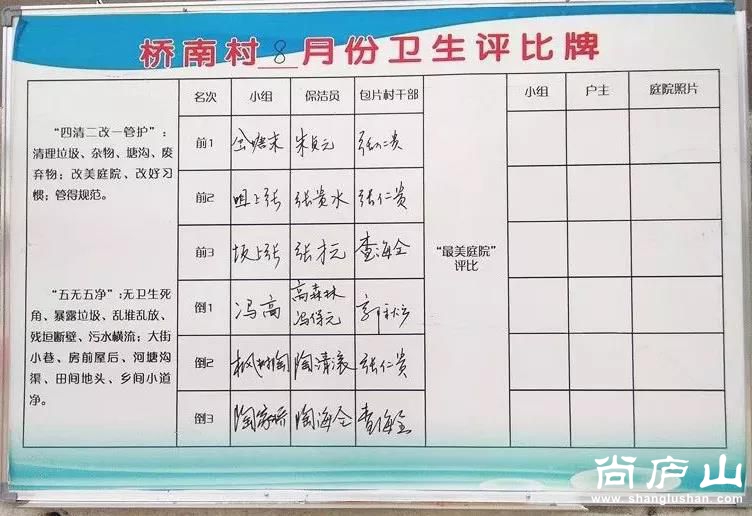 桥南村8月份卫生评比牌
名次 小组 保洁员 包片村干部 小组 户主 庭院照片
“四清二改一管护”：
清理垃圾、杂物、塘沟、废
弃物；改美庭院、改好习
惯；管得规范。
前1 张仁贵
前2 咀上张 张贵水 张仁贵
前3 坂上张 张才元 查海全
“最美庭院”
评比
“五无五净”：无卫生死
角、暴露垃圾、乱堆乱放、
残垣断壁、污水横流；大街
小巷、房前屋后、河塘沟
渠、田间地头、乡间小道
净。
倒1 冯高 高森林
冯保元
倒2 枫树陶 陶清滚 张仁贵
倒3 陶家桥 陶海全 查海全
尚庐山
www.shanglushan.com